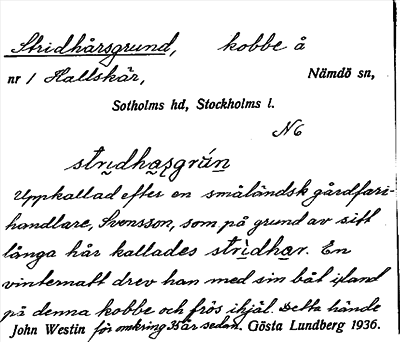 Stridhårsgrund, kobbe å
nr 1 Hallskär, Nämdö sn,
Sotholms hd, Stockholms l.
N6
strìdha̱ṣgrún
Uppkallad efter en småländsk gårdfari-
handlare, Svensson, som på grund av sitt
långa hår kallades strìdha̱r. En
vinternatt drev han med sin båt iland
på denna kobbe och frös ihjäl. Detta hände
John Westin för omkring 35 år sedan. Gösta Lundberg 1936.